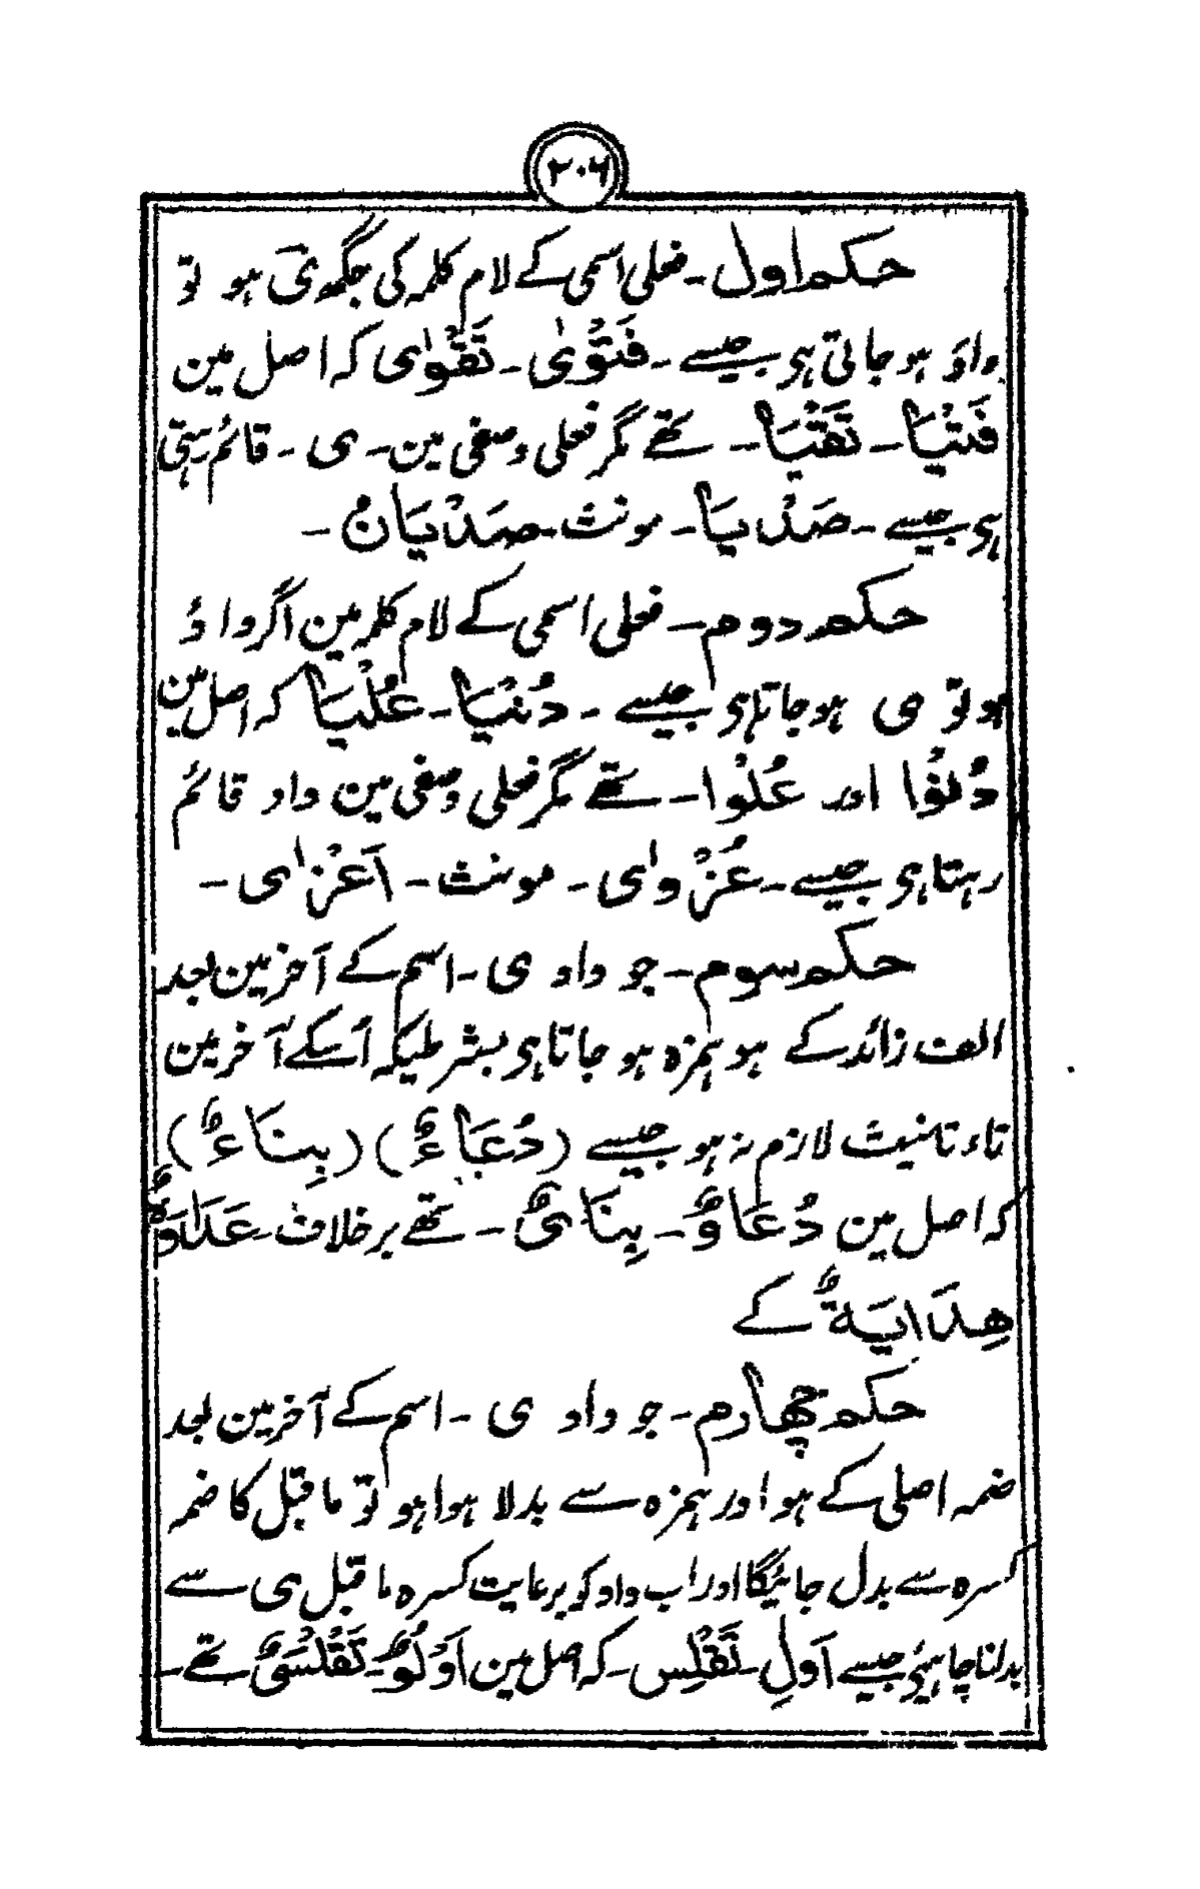 ۲۰۶
حکم اول ۔ فعلی اسمی کے لام کلمہ کی جگہ ی ہو تو
واؤ ہو جاتی ہی جیسے ۔ فَتْوٰی ۔ تَقْوٰی کہ اصل مین
فَتْیَا ۔ تَقْیَا ۔ تھے مگر فعلی وصفی مین ۔ ی ۔ قائم رہتی
ہی جیسے ۔ صَدْیَا ۔ مونث ۔ صَدْیَانُ ۔
حکم دوم ۔ فعلی اسمی کے لام کلمہ مین اگر واؤ
ہو تو ی ہو جاتا ہی جیسے ۔ دُنْیَا ۔ عُلْیَا کہ اصل مین
دُنْوَا اور عُلْوَا ۔ تھے مگر فعلی وصفی مین واو قائم
رہتا ہی جیسے ۔ عُزْوٰی ۔ مونث ۔ اَعْزٰی ۔
حکم سوم ۔ جو واو ی ۔ اسم کے آخر مین بعد
الف زائد کے ہو ہمزہ ہو جاتا ہی بشرطیکہ اُسکے آخر مین
تاء تانیث لازم نہ ہو جیسے (دُعَاءٌ) (بِنَاءٌ)
کہ اصل مین دُعَاوٌ ۔ بِنَایٌ ۔ تھے برخلاف ۔ عَدَاوَةٌ
ھِدَایَةٌ کے
حکم چھارم ۔ جو واو ی ۔ اسم کے آخر مین بعد
ضمہ اصلی کے ہو اور ہمزہ سے بدلا ہوا ہو تو ماقبل کا ضمہ
کسرہ سے بدل جائیگا اور اب واو کو برعایت کسرہ ماقبل ی سے
بدلنا چاہیے جیسے اَوْلِ ۔ تَقَلْسِ ۔ کہ اصل مین اَوْلُوٌ ۔ تَقَلْسُیٌ تھے ۔